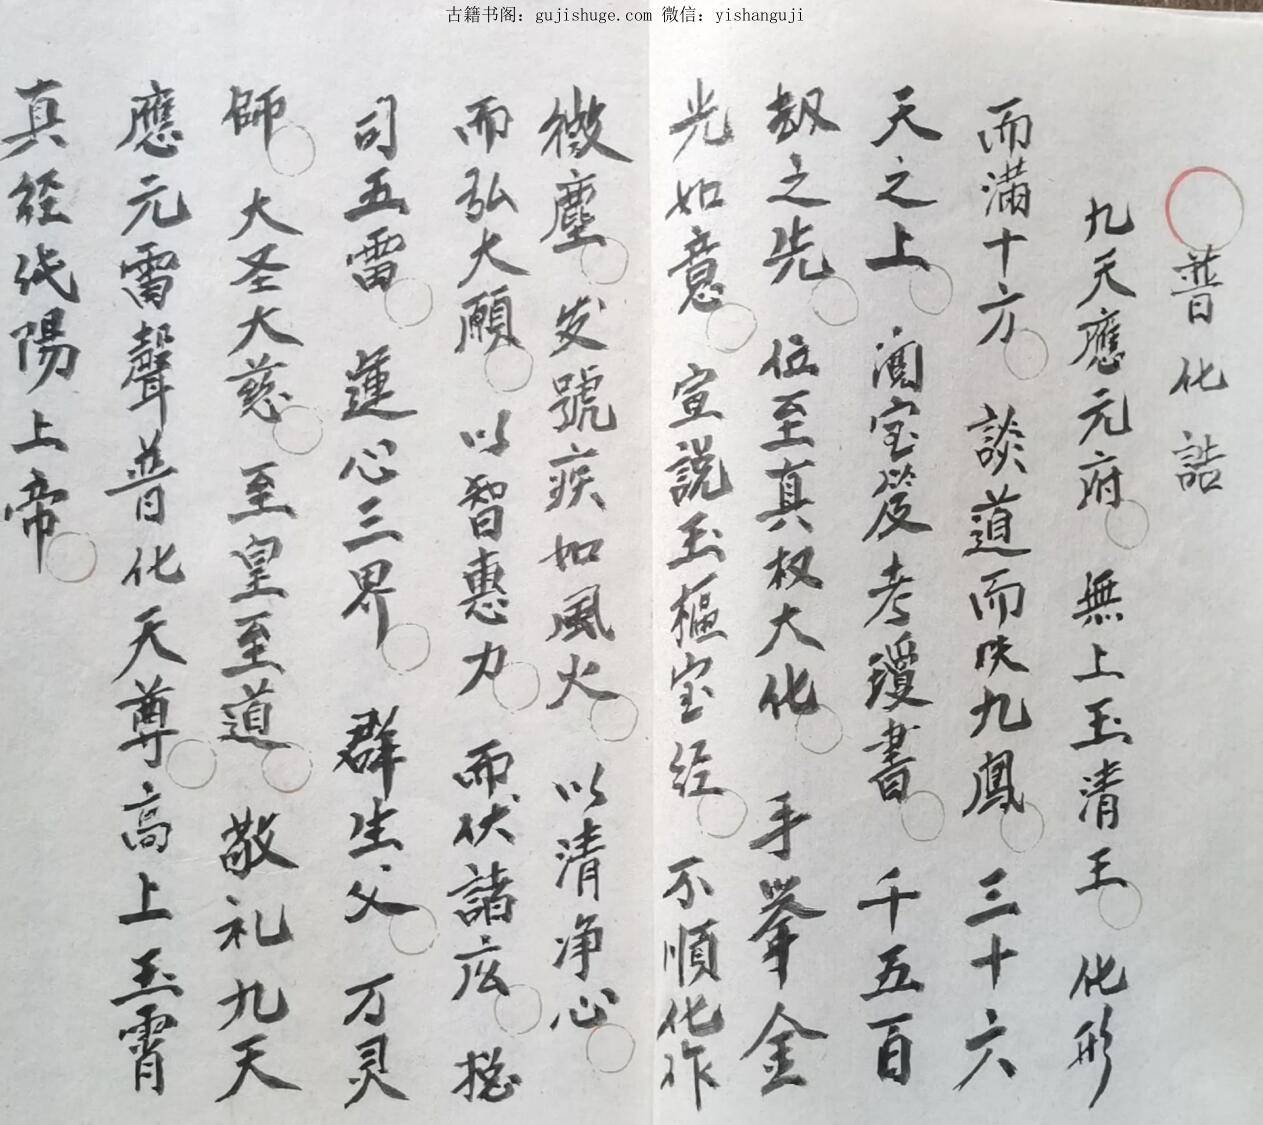 古籍书阁：gujishuge.com 微信：yishanguji
普化誥
九天應元府 無上玉清王 化形
而满十方 談道而趺九鳳 三十六
天之上 阅宝笈考瓊書 千五百
劫之先 位至真权大化 手举金
光如意 宣説玉樞宝经 不順化作
微塵 发號疾如風火 以清净心
而弘大願 以智惠力 而伏諸 揔
司五雷 運心三界 群生父 万灵
師 大圣大慈 至皇至道 敬礼九天
應元雷聲普化天尊高上玉霄
真经 陽上帝